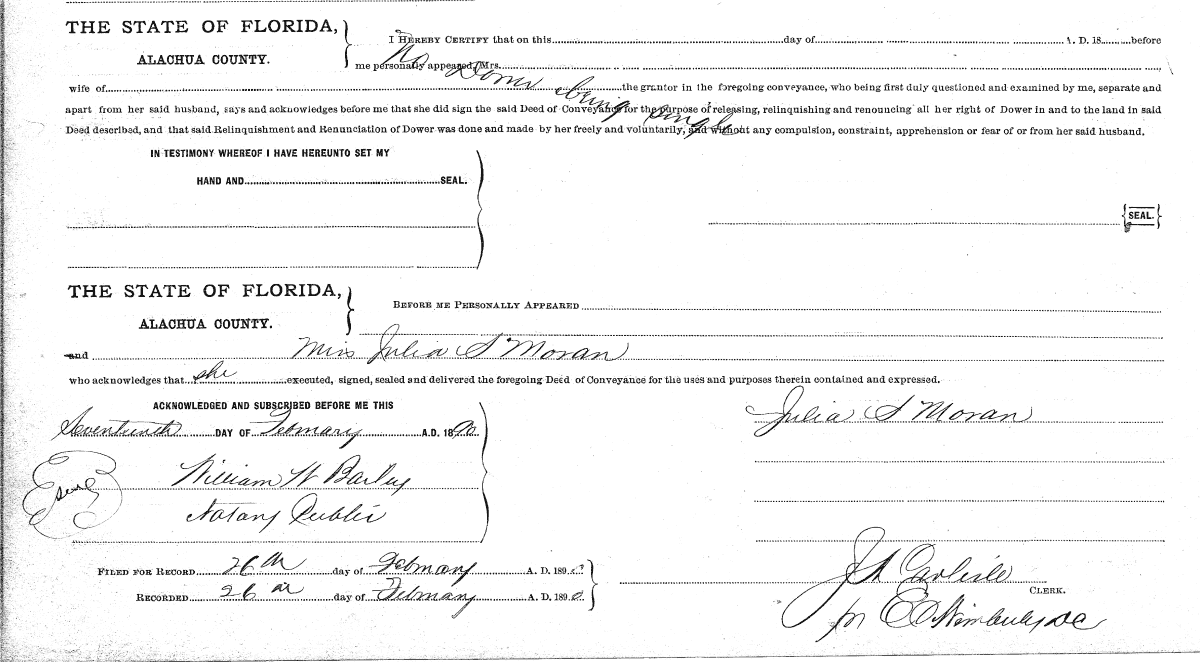 THE STATE OF FLORIDA,
ALACHUA COUNTY.
I HEREBY CERTIFY that on this day of A. D. 18 before
me personally appeared Mrs.
No Dower being single
wife of the grantor in the foregoing conveyance, who being first duly questioned and examined by me, separate and
apart from her said husband, says and acknowledges before me that she did sign the said Deed of Conveyance for the purpose of releasing, relinquishing and renouncing all her right of Dower in and to the land in said
Deed described, and that said Relinquishment and Renunciation of Dower was done and made by her freely and voluntarily, and without any compulsion, constraint, apprehension or fear of or from her said husband.
IN TESTIMONY WHEREOF I HAVE HEREUNTO SET MY
HAND AND SEAL.
SEAL.
THE STATE OF FLORIDA,
ALACHUA COUNTY.
BEFORE ME PERSONALLY APPEARED
and Miss Julia S Moran
who acknowledges that she executed, signed, sealed and delivered the foregoing Deed of Conveyance for the uses and purposes therein contained and expressed.
ACKNOWLEDGED AND SUBSCRIBED BEFORE ME THIS
Seventeenth DAY OF February A.D. 1890
Julia S Moran
seal
William W
Notary Public
FILED FOR RECORD 26th day of February A. D. 189
RECORDED 26th day of February A. D. 1890
Carlisle
CLERK.
DC